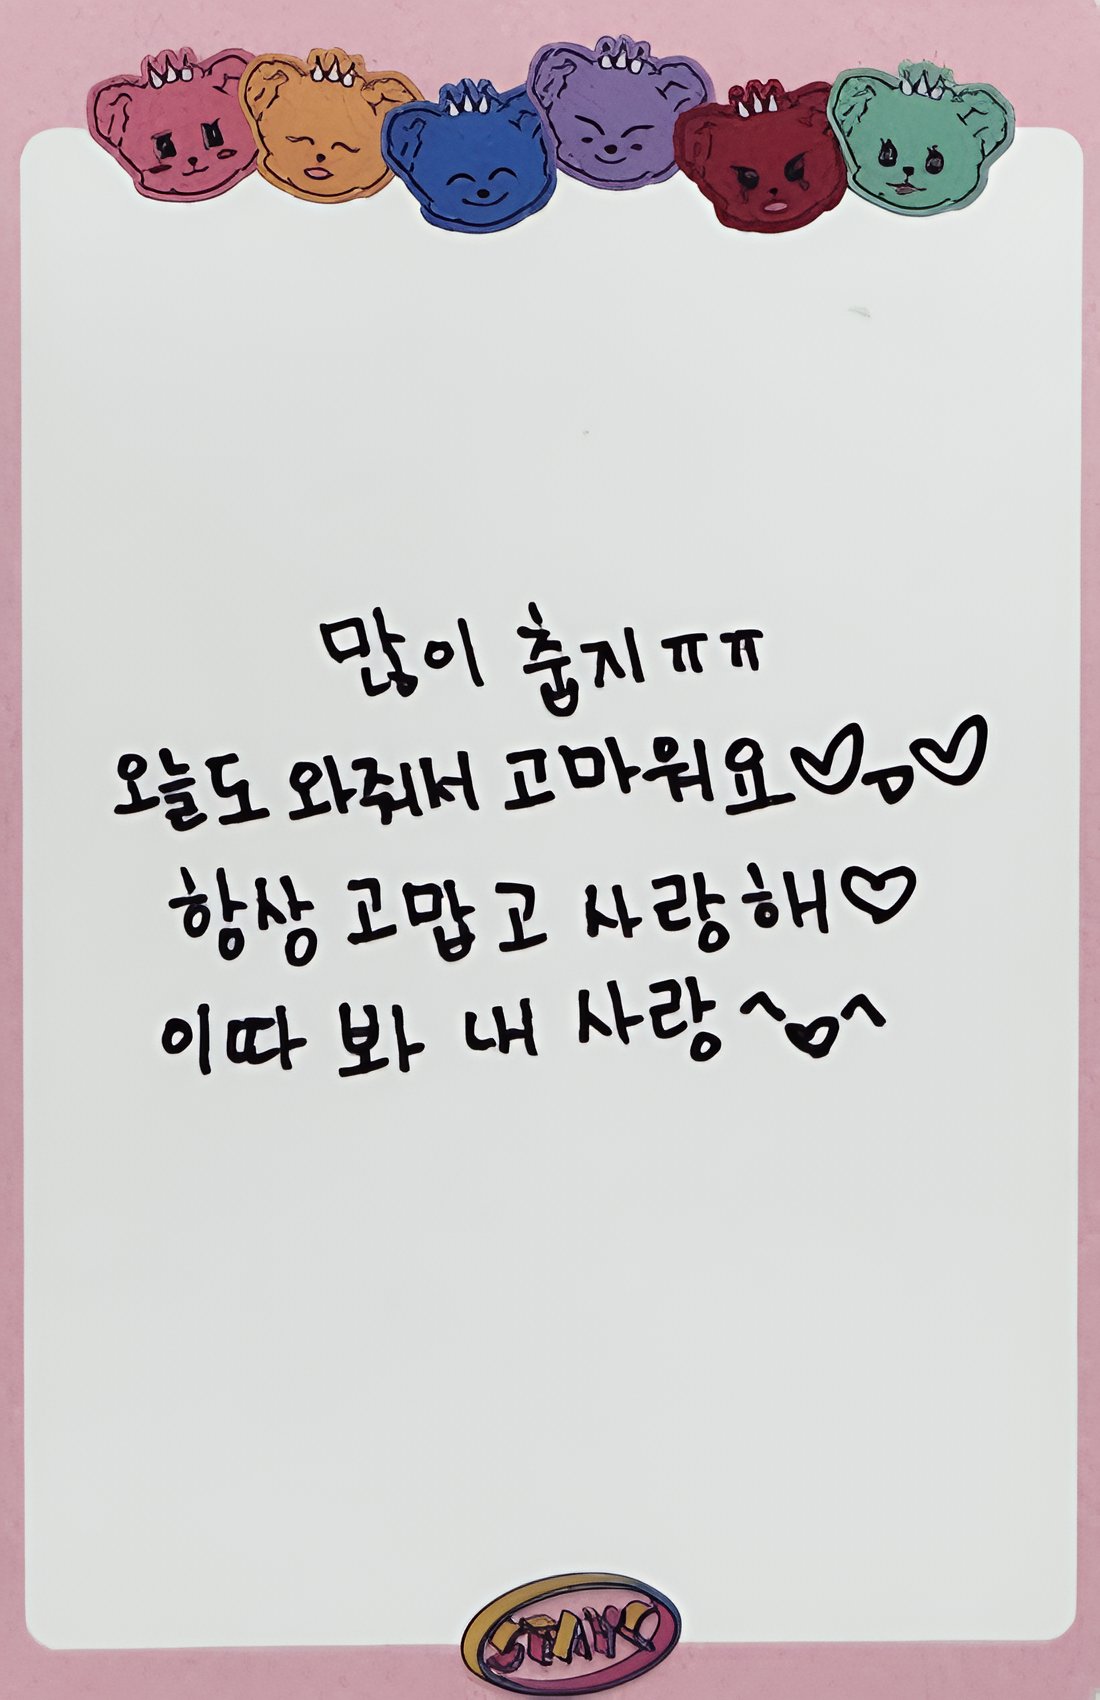 많이 춥지ㅠㅠ
오늘도 와줘서 고마워요♡ㅇ♡
항상 고맙고 사랑해♡
이따 봐 내 사랑^o^
STAYC